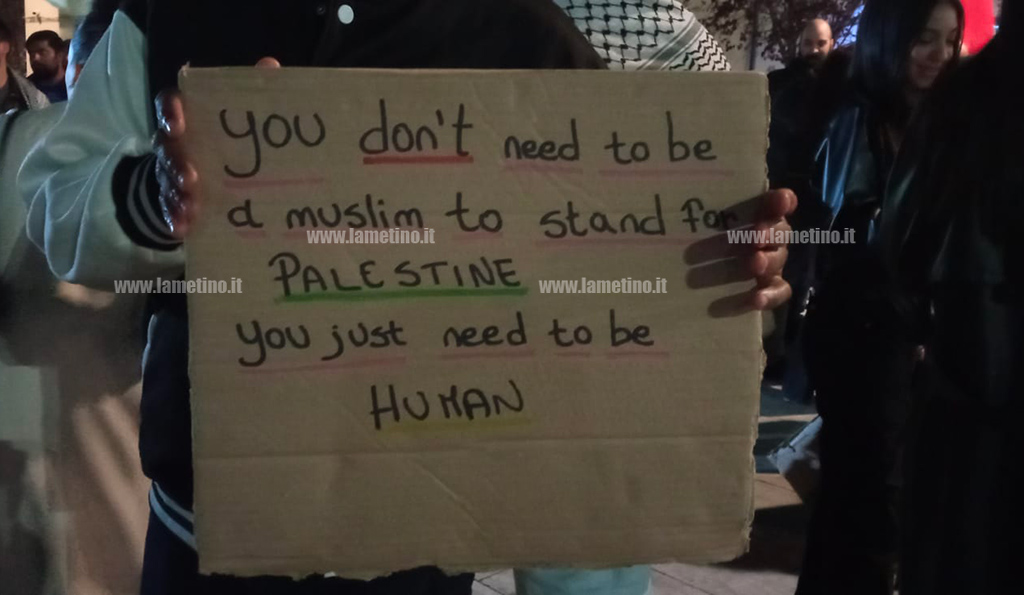 you don't need to be
a muslim to stand for
PALESTINE
you just need to be
HUMAN
www.lametino.it
www.lametino.it
www.lametino.it
www.lametino.it